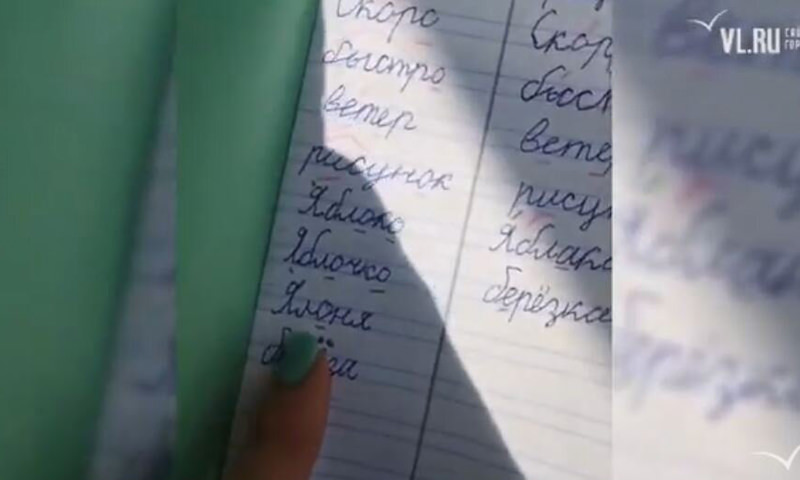 VL.RU
Скоро
быстро
ветер
рисунок
Яблоко
Яблочко
Ялоня
Скор
быст
вете
рисун
Яблако
берёзка